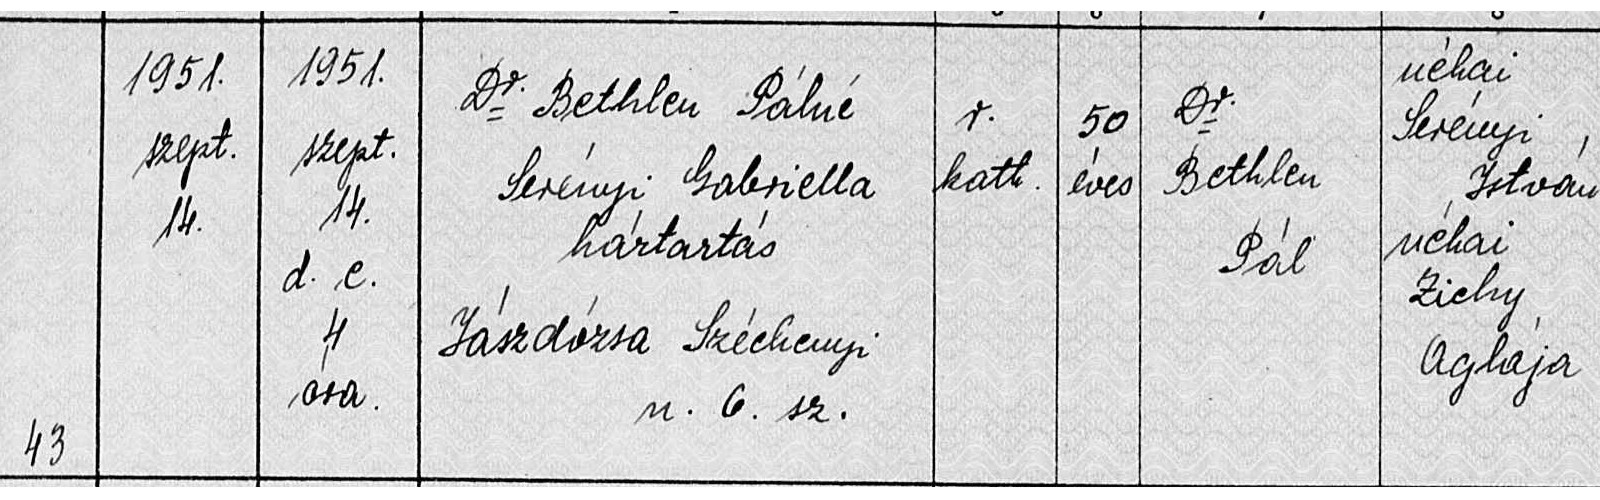 43
1951.
szept.
14.
1951.
szept.
14.
d. e.
4
óra.
Dr. Bethlen Pálné
Serényi Gabriella
háztartás
Jászdózsa Széchenyi
u. 6. sz.
r.
kath.
50
éves
Dr.
Bethlen
Pál
néhai
Serényi
István
néhai
Zichy
Aglája